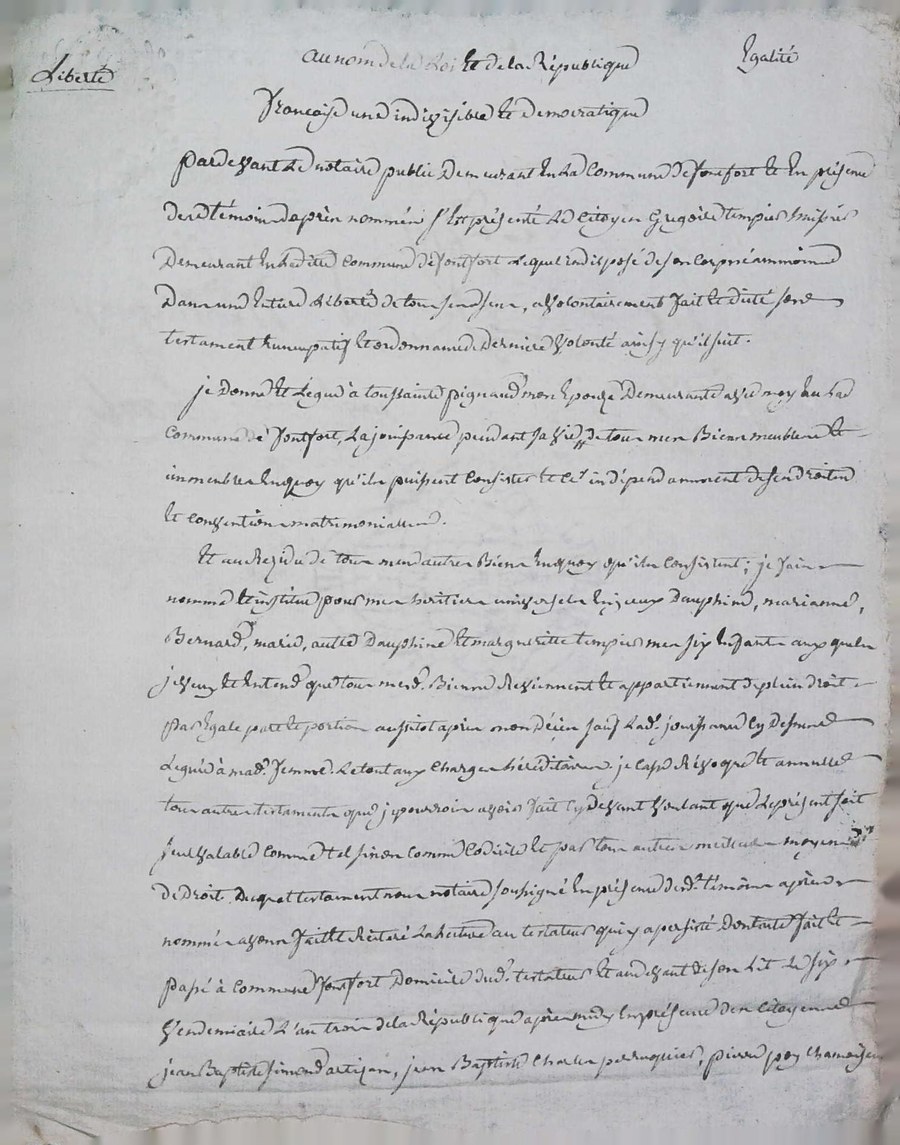 Liberté
au nom de la Loi et de la République
Egalité
française une indivisible et democratique
pardevant le notaire public demeurant en la commune de fontfort et en présence
des témoins après nommés s'est présenté le citoyen Gregoire tempier
demeurant en ladite commune de fontfort lequel indisposé de son corps néanmoins
dans une entiere liberté de tous ses sens, a volontairement fait et dicté son
testament nuncupatif et ordonnance de derniere volonté ainsy qu'il suit.
je donne et legue à toussainte pignaud mon epouze demeurante avec moy en lad
commune de fontfort, la jouissance pendant sa vie de tous mes Biens meubles et
immeubles enquoy qu'ils puissent consister et ce independamment de ses droits
et convention matrimoniales.
Et au Rezidu de tous mes autres Biens enquoy qu'ils consistent; je fais
nomme et institue pour mes heritiers universels en jceux Dauphine, marianne,
Bernard, marie, autre Dauphine et margueritte tempier mes six enfants auxquels
je veux et entend que tous mesd. Biens Reviennent et appartiennent de plein droit
par egale part et portion aussitot après mon décès sauf lad. jouissance cy dessus
leguée à mad. femme. le tout aux charges héréditaires. je casse Révoque et annulle
tous autres testaments que je pourrois avoir fait cy devant voulant que le présent soit
seul valable comme tel sinon comme codicile et par tous autres meilleurs moyens
de Droit. Duquel testament nous notaire soussigné en présence desd. témoins après
nommés avons fait et Réiteré la lecture au testateur qui y a persisté Dont acte fait et
passé à commune fontfort Domicile dud. testateur et au devant de son Lit le six
Vendemiaire L'an trois de la République après midy en présence des citoyens
jean Baptiste simond artisan, jean Baptiste Charles perruquier, pierre pey chamoiseur